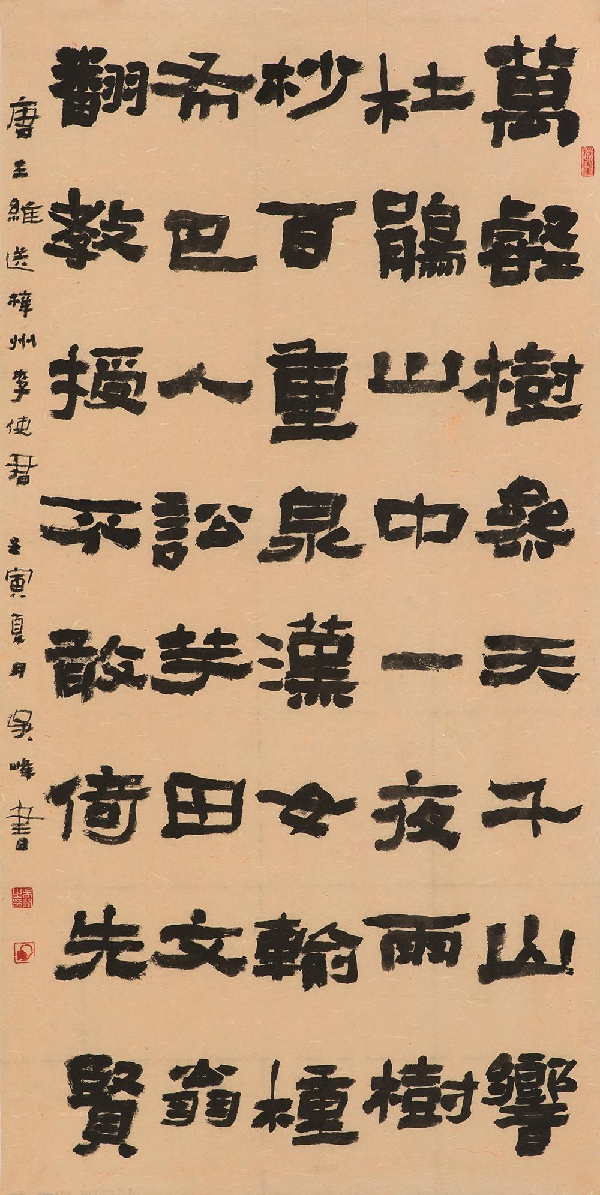 萬壑樹參天千山響
杜鵑山中一夜雨樹
杪百重泉漢女輸橦
布巴人訟芋田文翁
翻教授不敢倚先賢
唐王維送梓州李使君 壬寅夏月吳峰書